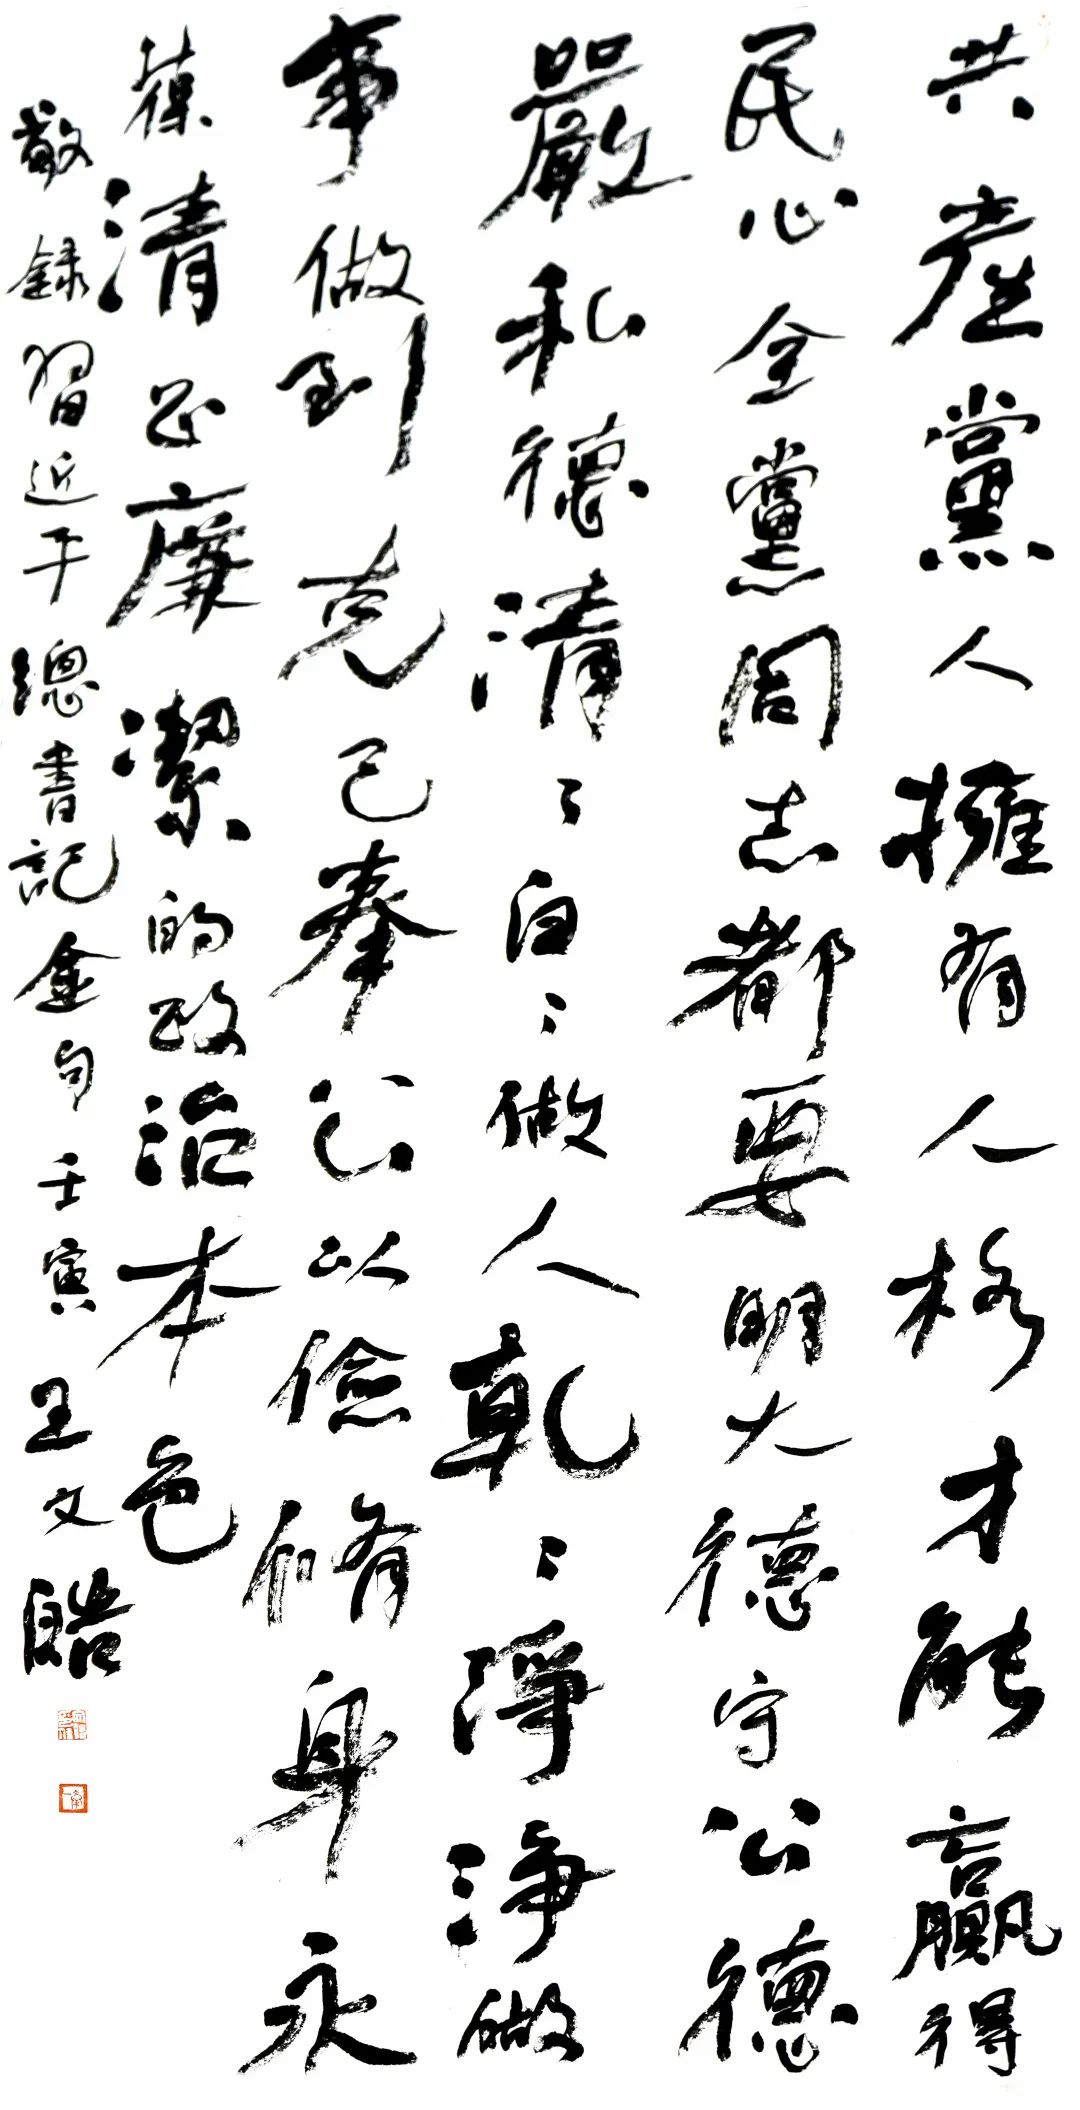 共產黨人擁有人格才能贏得
民心全黨同志都要明大德守公德
嚴私德清〻白〻做人乾〻淨淨做
事做到克己奉公以儉脩身永
葆清正廉潔的政治本色
敬録習近平總書記金句壬寅王文皓